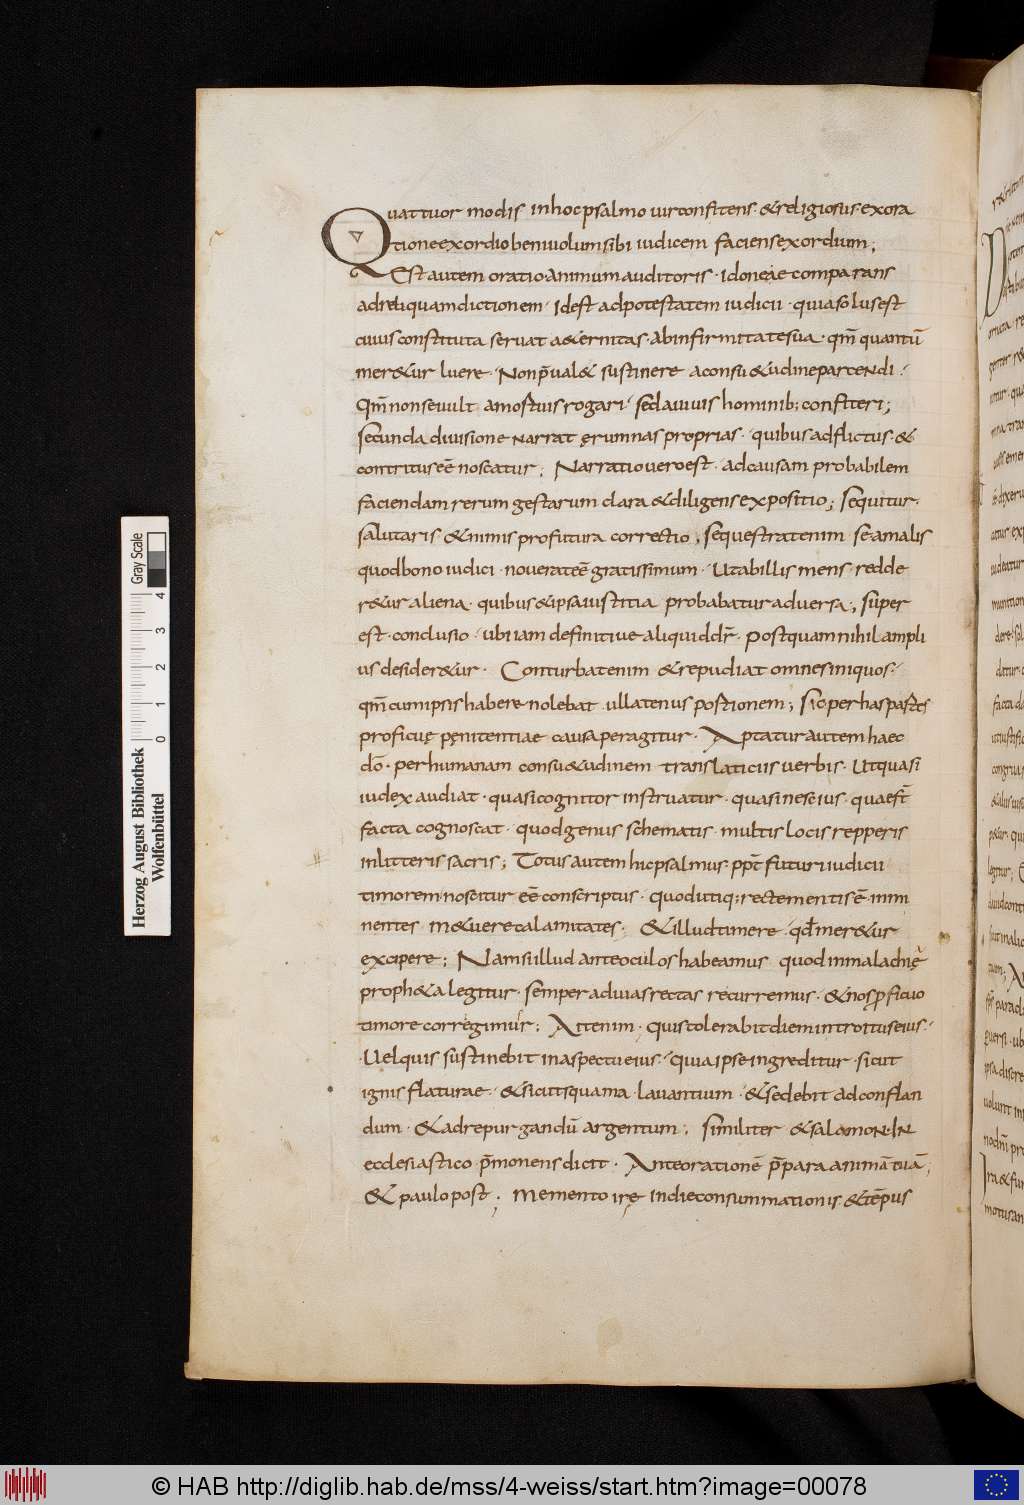 Quattuor modis inhocpsalmo uirconfitens·&religiosus·exora
tioneexordiobeniuolumsibi iudicem faciensexordium;
Est autem oratio animum auditoris·idoneae comparans
adreliquamdictionem·Idest adpotestatem iudicii·quiasolusest
cuius constituta seruat a&ernitas·abinfirmitatesua·qm̄ quantū
mer&ur luere·Nonp̄ual& sustinere aconsu&udinepartendi·
Qm̄ nonseuult amostuis rogari·sedauiuis hominib; confiteri;
Secunda diuisione narrat ęrumnas proprias·quibus adflictus·&
contritus eē noscatur; Narratio ueroest·adcausam probabilem
faciendam rerum gestarum clara &diligens expositio; Sequitur·
salutaris &nimis profutura correctio; Sequestratenim se amalis
quodbono iudici·nouerateē gratissimum·Utabillis mens·redde
r&ur aliena·quibus &ipsa iustitia probabatur aduersa; Super
est·conclusio·ubi iam definitiue aliquiddr̄·Postquam nihil ampli
us desider&ur· Conturbatenim &repudiat omnes iniquos·
qm̄ cumipsis habere nolebat·ullatenus postionem; Sic per has partes
proficuę pęnitentiae causa peragitur· Aptatur autem haec
dō·per humanam consu&udinem translaticiis uerbis·Utquasi
iudex audiat·quasi cognitor instruatur·quasi nescius·quaest̄
facta cognoscat·quodgenus schematis·multis locis repperis
inlitteris sacris; Totus autem hicpsalmus·ppt̄ futuri iudicii
timorem noscitur eē conscriptus·quod utiq; recte mentis ē immi
nentes m&uere calamitates· &illud timere·qd̄ mer&ur
excipere; Nam si illud anteoculos habeamus quod inmalachię
proph&a legitur·semper aduias rectas recurremus·&nos p̄ficuo
timore corregimur; Ait enim·quis tolerabit diem introitus eius·
·Uel quis sustinebit in aspectu eius·quia ipse ingreditur·sicut
ignis flaturae·&sicutsquama·lauantium·&sedebit ad conflan
dum·&adrepurgandū argentum; Similiter &salamon·IN
ecclesiastico·p̄monens dicit· Anteorationē p̄para animā tuā;
& paulo post; Memento irę indieconsummationis·&tēpus
Gray Scale
0 1 2 3 4
Herzog August Bibliothek
Wolfenbüttel
© HAB http://diglib.hab.de/mss/4-weiss/start.htm?image=00078